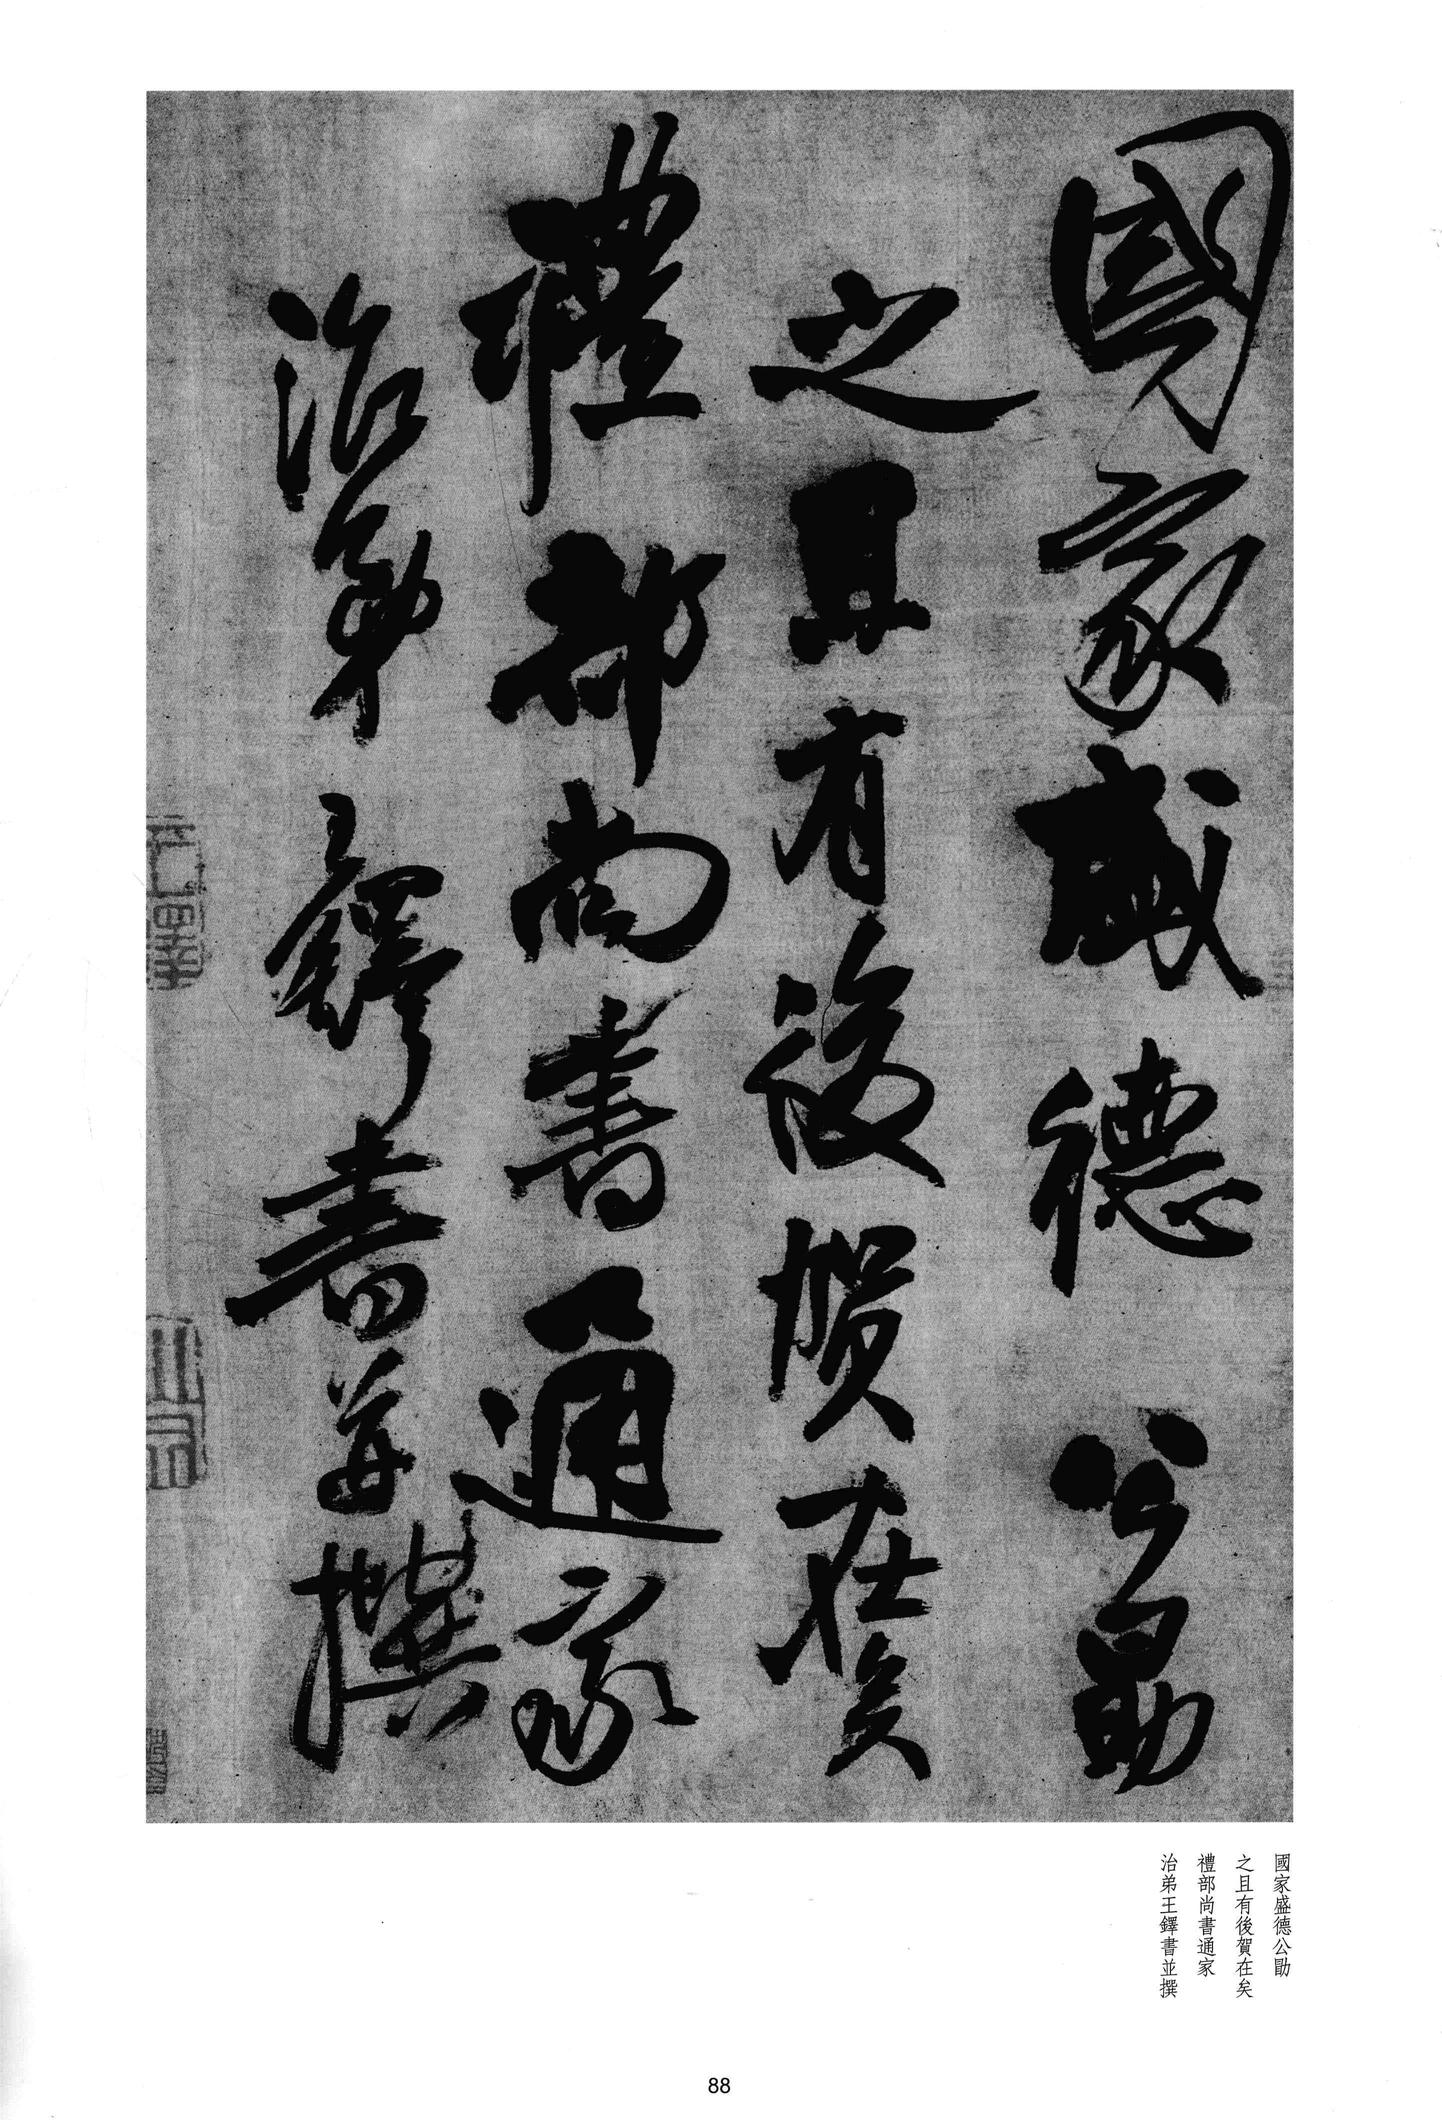 國家盛德公勖
之且有後賀在矣
禮部尚書通家
治弟王鐸書並撰
國家盛德公勖
之且有後賀在矣
禮部尚書通家
治弟王鐸書並撰
88